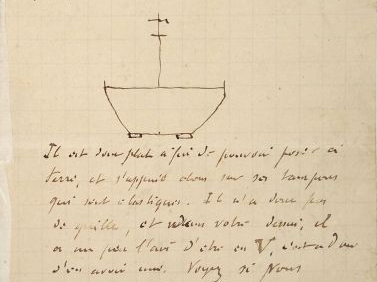 Il est donc plat afin de pouvoir poser à
terre, et s'appuie alors sur ses tampons
qui sont élastiques. Il n'a donc pas
de quille, et dans votre dessin, il
a un peu l'air d'être en V, c'est à dire
d'en avoir une. Voyez si vous